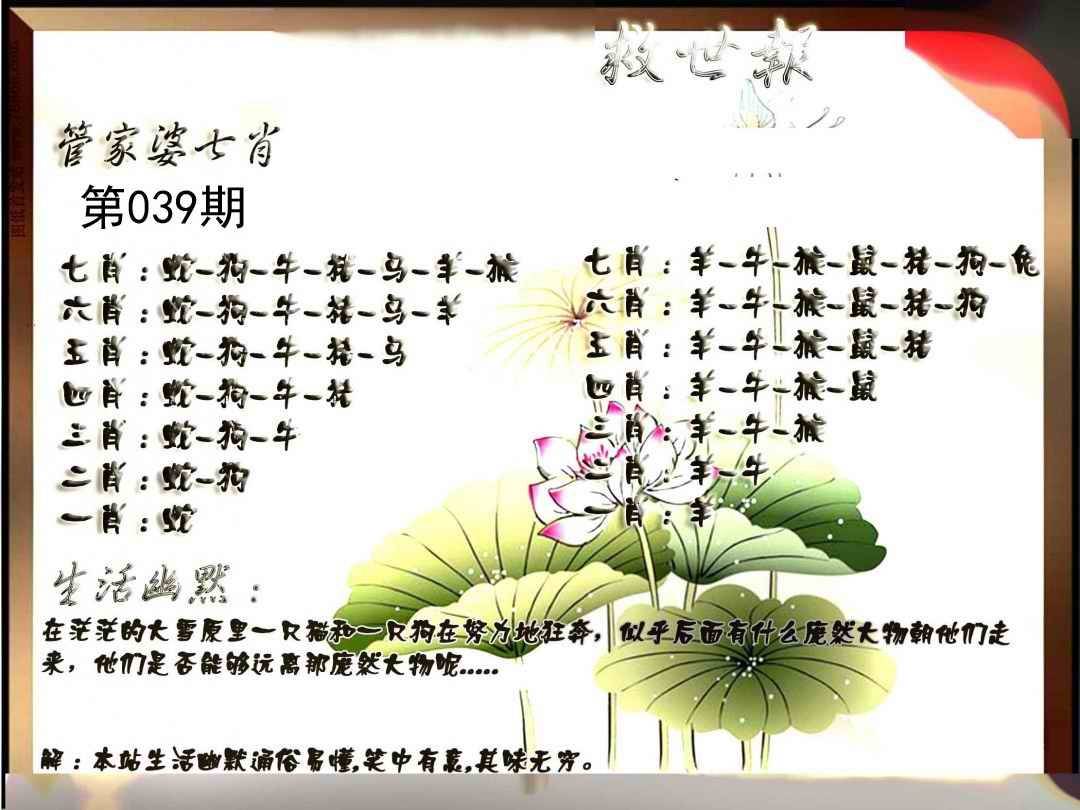 救世報
管家婆七肖
第039期
七肖：蛇-狗-牛-猪-马-羊-猴
六肖：蛇-狗-牛-猪-马-羊
五肖：蛇-狗-牛-猪-马
四肖：蛇-狗-牛-猪
三肖：蛇-狗-牛
二肖：蛇-狗
一肖：蛇
七肖：羊-牛-猴-鼠-猪-狗-兔
六肖：羊-牛-猴-鼠-猪-狗
五肖：羊-牛-猴-鼠-猪
四肖：羊-牛-猴-鼠
三肖：羊-牛-猴
二肖：羊-牛
一肖：羊
生活幽默：
在茫茫的大雪原里一只猫和一只狗在努力地狂奔，似乎后面有什么庞然大物朝他们走
来，他们是否能够远离那庞然大物呢.....
解：本站生活幽默通俗易懂,笑中有意,其味无穷。